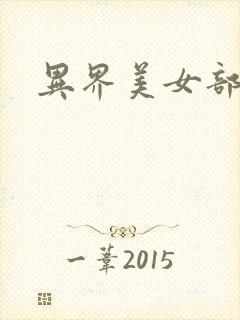 異界美女部
一葦2015